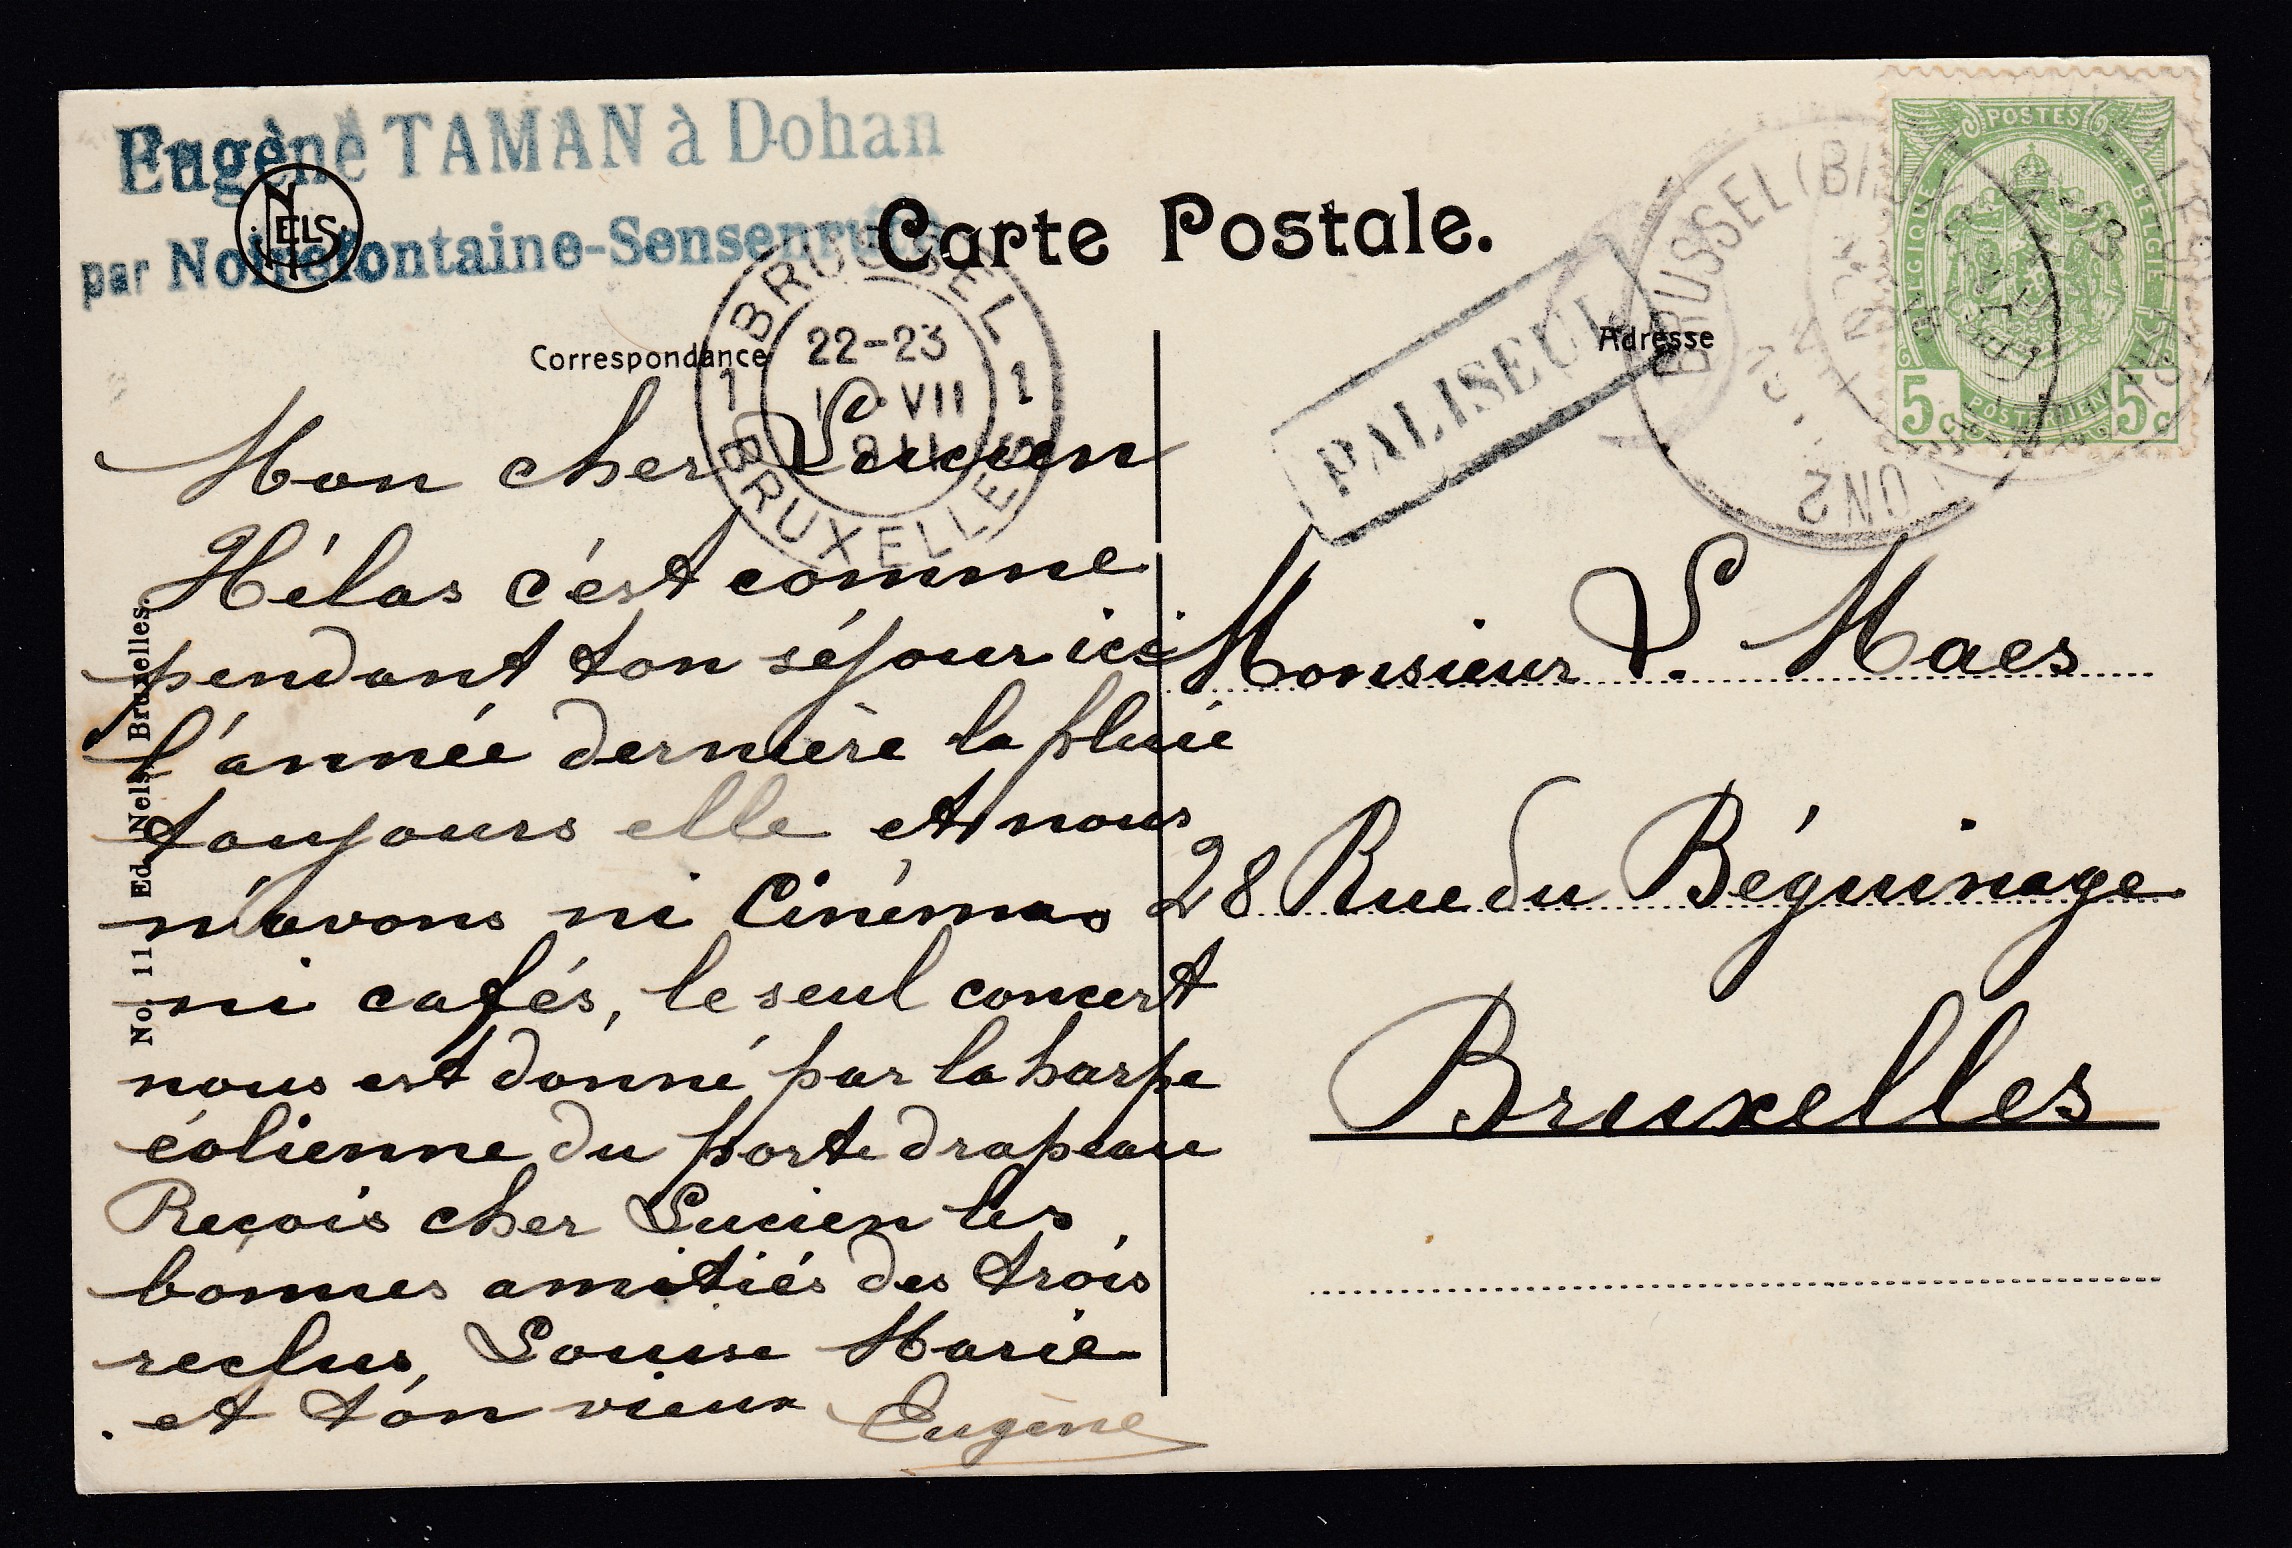 Eugène TAMAN à Dohan
par Noirefontaine-Sensenruth
NELS
Carte Postale.
Correspondance
Adresse
BRUSSEL
1 22-23 1
VII
BRUXELLES
PALISEUL
BRUSSEL
POSTES
BELGIQUE
BELGIË
POSTERIJEN
5c 5c
No. 11 Ed. Nels, Bruxelles.
Mon cher Lucien
Hélas c'est comme
pendant ton séjour ici
l'année dernière la pluie
toujours elle et nous
n'avons ni Cinémas
ni cafés, le seul concert
nous est donné par la harpe
éolienne du porte drapeau
Reçois cher Lucien les
bonnes amitiés des trois
reclus, Louise Marie
et ton vieux Eugène
Monsieur L. Maes
28 Rue du Béguinage
Bruxelles